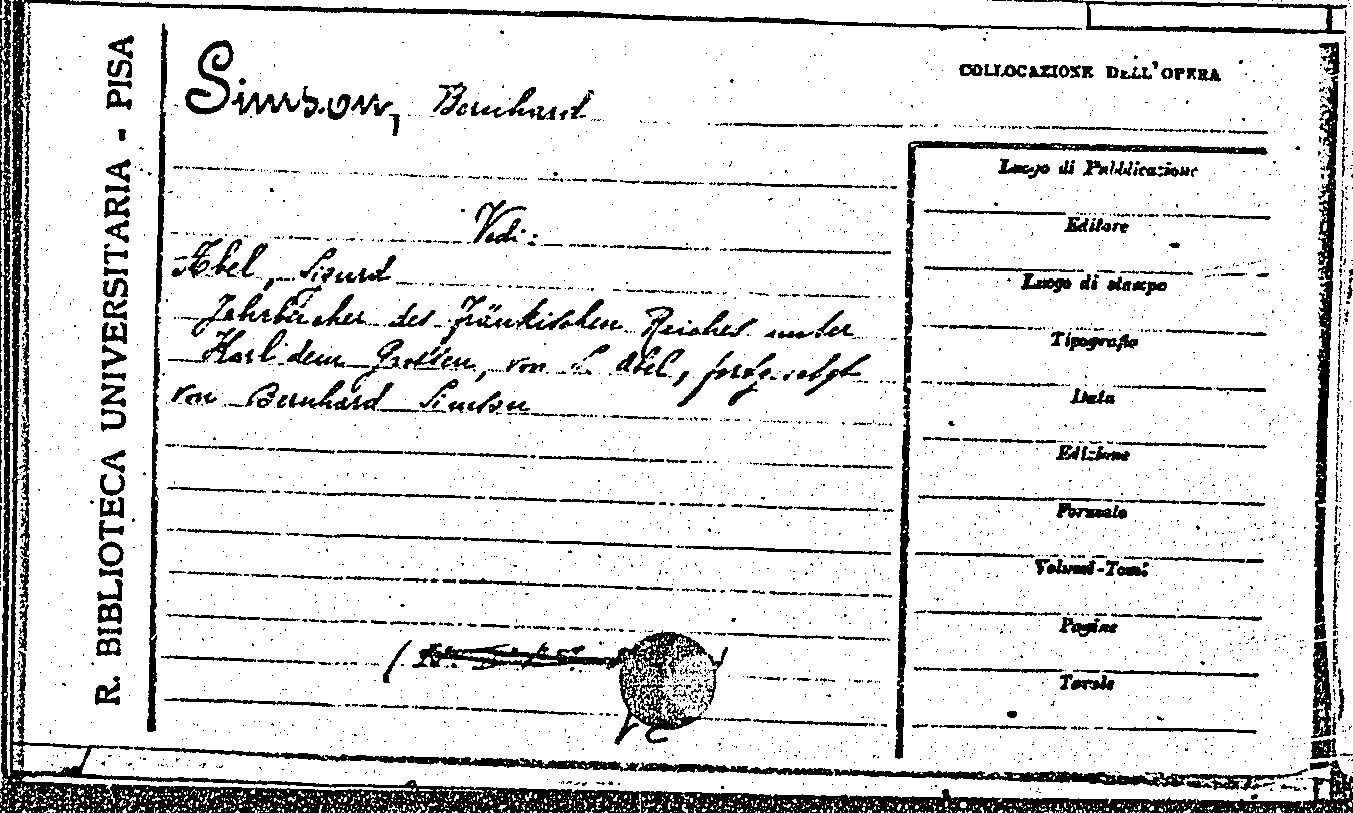 R. BIBLIOTECA UNIVERSITARIA - PISA
Simson, Bernhard
COLLOCAZIONE DELL'OPERA
Vedi:
Abel, Sigurd
Jahrbücher des Fränkischen Reiches unter
Karl dem Großen, von S. Abel, fortgesetzt
von Bernhard Simson
Luogo di Pubblicazione
Editore
Luogo di stampo
Tipografio
Data
Edizione
Formato
Volumi-Tomi
Pagine
Tavole